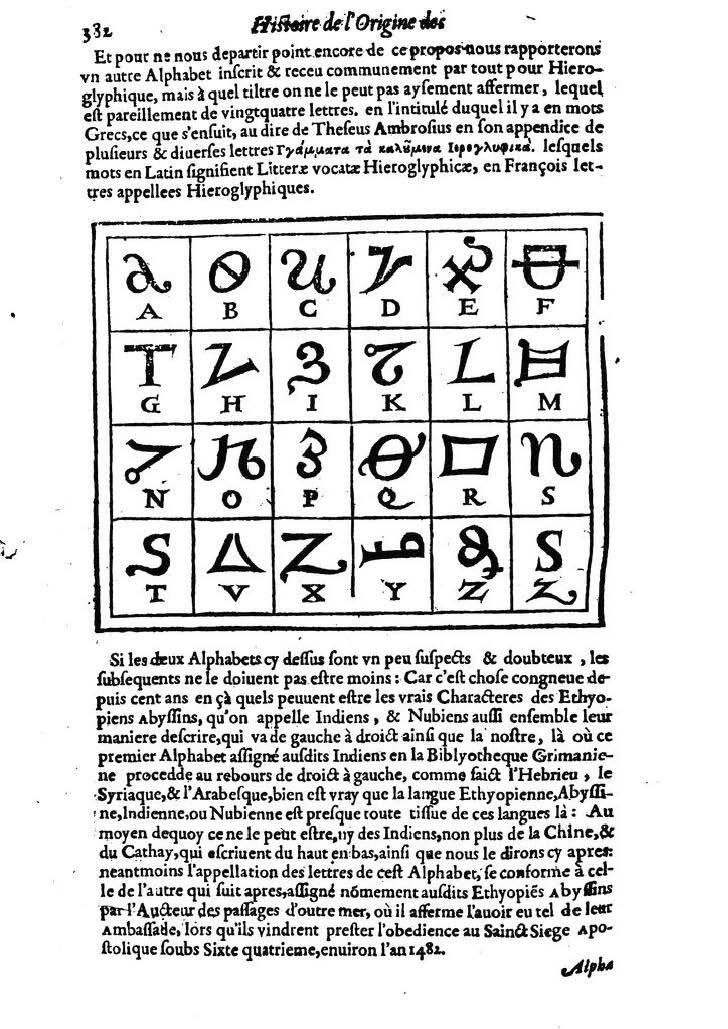 382 Histoire de l'Origine des
Et pour ne nous departir point encore de ce propos nous rapporterons
vn autre Alphabet inſcrit & receu communement par tout pour Hiero-
glyphique, mais à quel tiltre on ne le peut pas ayſement affermer, lequel
eſt pareillement de vingtquatre lettres. en l'intitulé duquel il y a en mots
Grecs,ce que s'enſuit, au dire de Theſeus Ambroſius en ſon appendice de
pluſieurs & diuerſes lettres Γράμματα τὰ καλȣ́μινα Ιερογλυφικά. leſquels
mots en Latin ſignifient Litteræ vocatæ Hieroglyphicæ, en François let-
tres appellees Hieroglyphiques.
A B C D E F
G H I K L M
N O P Q R S
T V X Y Z Z
Si les deux Alphabets cy deſſus ſont vn peu ſuſpects & doubteux , les
ſubſequents ne le doiuent pas eſtre moins : Car c'eſt choſe congneue de-
puis cent ans en çà quels peuuent eſtre les vrais Characteres des Ethyo-
piens Abyſſins, qu'on appelle Indiens , & Nubiens auſſi enſemble leur
maniere deſcrire,qui va de gauche à droict ainſi que la noſtre, là où ce
premier Alphabet aſſigné auſdits Indiens en la Biblyotheque Grimanie-
ne procedde au rebours de droict à gauche, comme faict l'Hebrieu , le
Syriaque,& l'Arabeſque,bien eſt vray que la langue Ethyopienne,Abyſſi-
ne,Indienne,ou Nubienne eſt preſque toute tiſſue de ces langues là : Au
moyen dequoy ce ne le peut eſtre,ny des Indiens,non plus de la Chine,&
du Cathay,qui eſcriuent du haut en bas,ainſi que nous le dirons cy apres:
neantmoins l'appellation des lettres de ceſt Alphabet, ſe conforme à cel-
le de l'autre qui ſuit apres,aſſigné nõmement auſdits Ethyopiẽs Abyſſins
par l'Aucteur des paſſages d'outre mer, où il afferme l'auoir eu tel de leur
Ambaſſade, lors qu'ils vindrent preſter l'obedience au Sainct Siege Apo-
ſtolique ſoubs Sixte quatrieme,enuiron l'an 1482.
Alpha